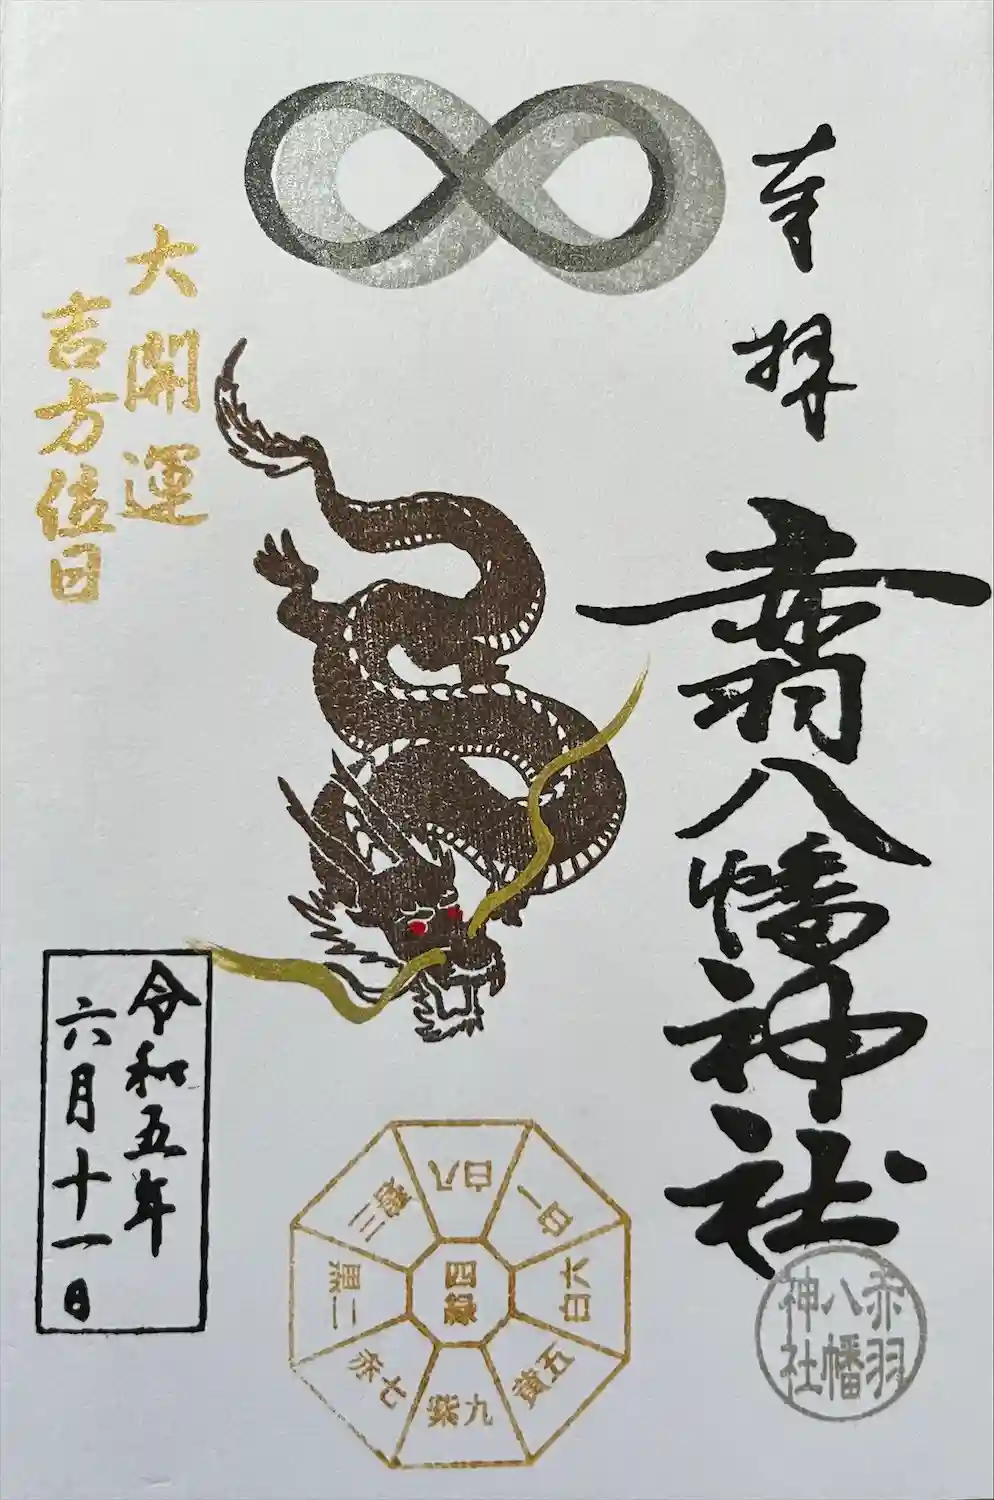 奉拝
赤羽八幡神社
大開運
吉方位日
令和五年
六月十一日
四緑
八白
一白
六白
五黄
九紫
七赤
二黒
三碧
赤羽
八幡
神社